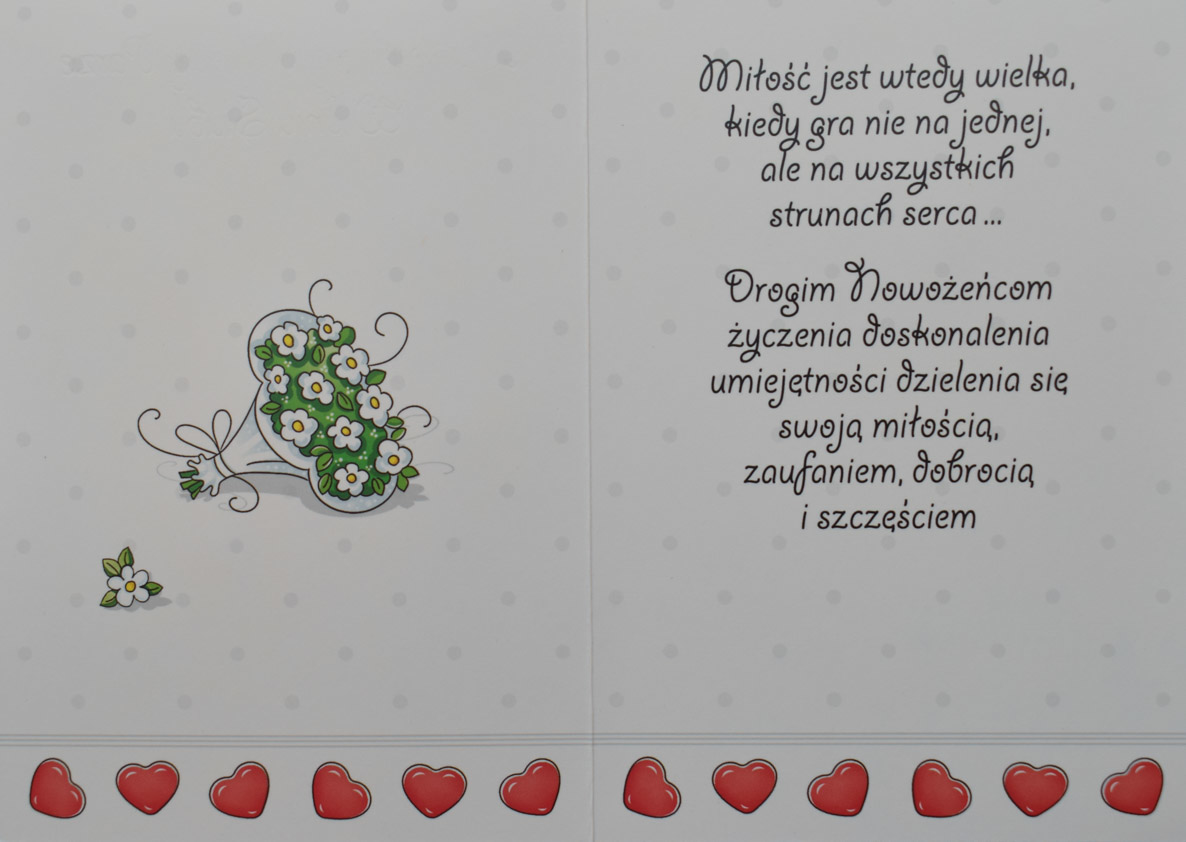 Miłość jest wtedy wielka,
kiedy gra nie na jednej,
ale na wszystkich
strunach serca ...
Drogim Nowożeńcom
życzenia doskonalenia
umiejętności dzielenia się
swoją miłością,
zaufaniem, dobrocią
i szczęściem